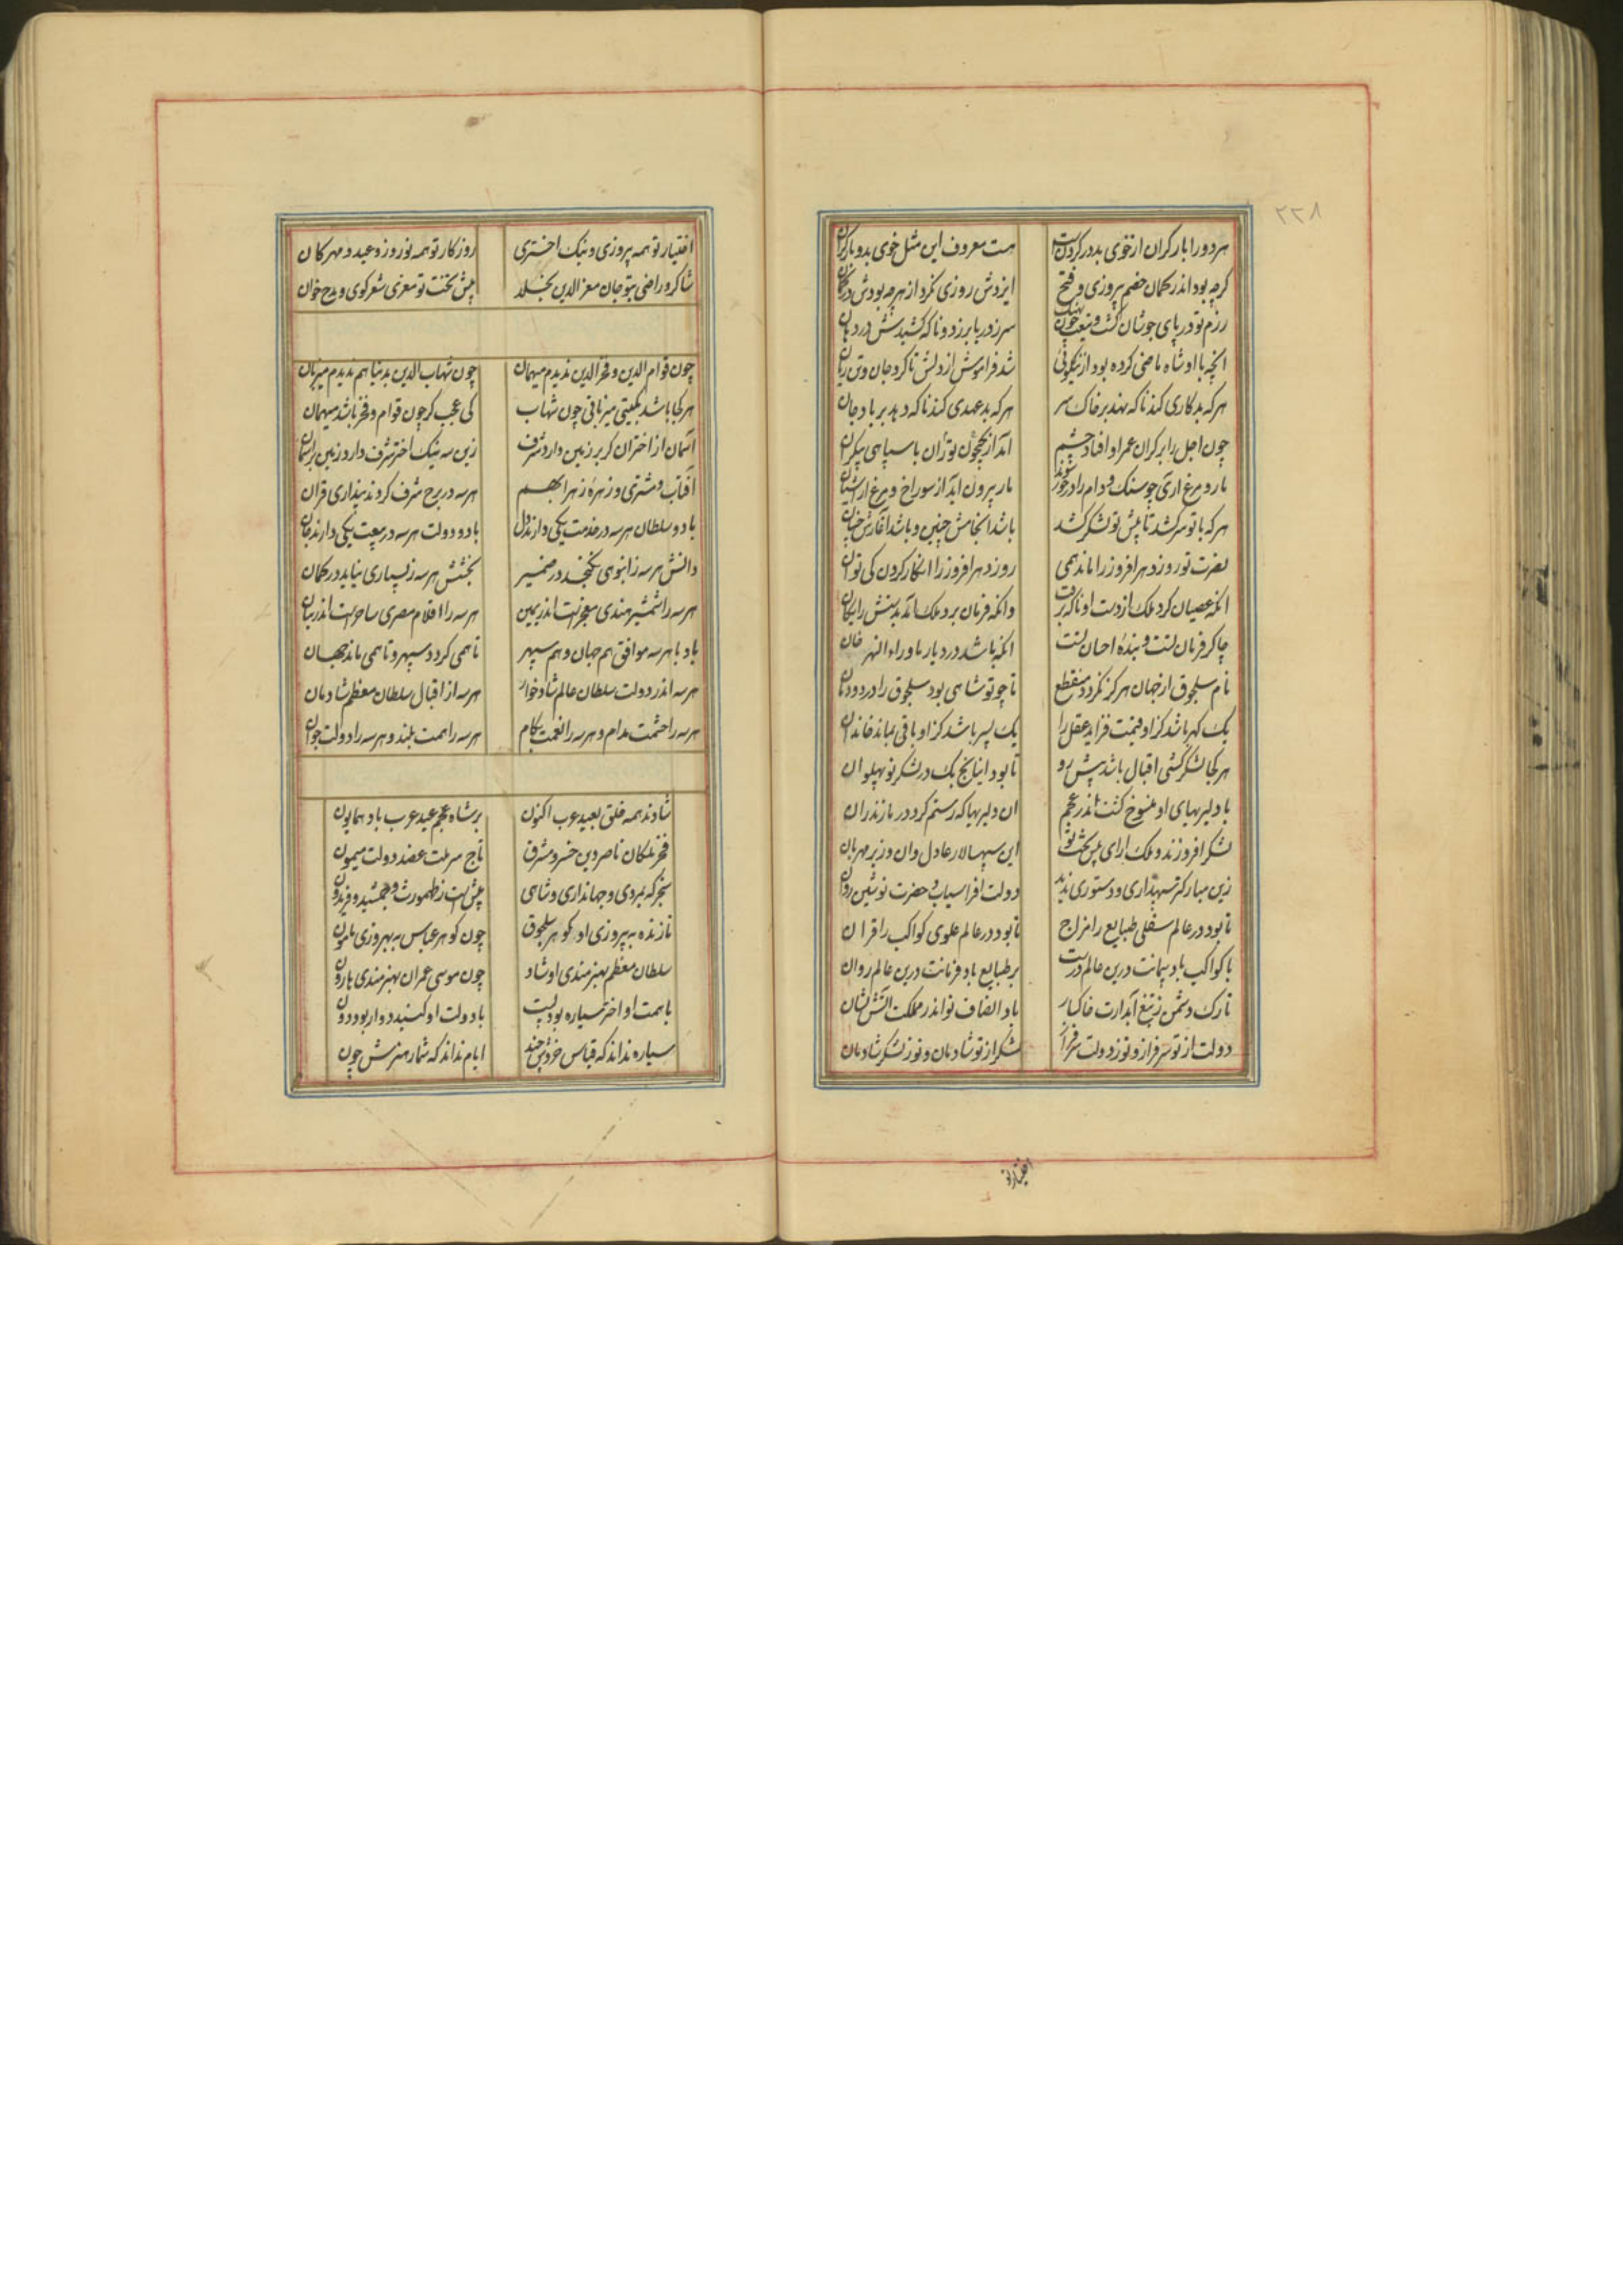 ۲۲۸
هر دو را بار کران از خوی بد در کردن است هست معروف این مثل خوی بد و بار کران
کرچه بود اندر کمان خصم پیروزی و فتح ایزدش روزی نکرد از هرچه بودش در کمان
رزم تو دریای جوشان کشت و تیغت چون نهنک سر ز دریا بر زد و ناکه کشیدش در دهان
انچه با او شاه ماضی کرده بود از نیکوئی شد فراموش از دلش تا کرد جان و تن زیان
هر که بدکاری کند ناکه نهد بر خاک سر هر که بدعهدی کند ناکه دهد بر باد جان
چون اجل را بر کران عمر او افتاد چشم آمد از جیحون توران با سپاهی بیکران
مار و مرغ اری چو سنک و دام را در خور شوند مار بیرون اید از سوراخ و مرغ از آشیان
هر که با تو سر کشد تا پیش تو لشکر کشد باشد انجامش چنین و باشد آغازش چنان
نصرت تو روز دهر افروز را ماند همی روز دهر افروز را انکار کردن کی توان
انکه عصیان کرد ملک از دست او ناکه برفت وانکه فرمان برد ملک آمد بدستش رایکان
چاکر فرمان تست و بنده احسان تست انکه باشد در دیار ماوراءالنهر خان
نام سلجوق از جهان هرکز نکردد منقطع تا چو تو شاهی بود سلجوق را در دودمان
یک کهر باشد کز او قیمت فزاید عقل را یک پسر باشد کز او باقی بماند خاندان
هر کجا لشکر کشی اقبال باشد پیش رو تا بود اینانج بک در لشکر تو پهلوان
با دلیریهای او منسوخ کشت اندر عجم ان دلیریها که رستم کرد در مازندران
لشکر افروزند و ملک ارای پیش تخت تو این سپهسالار عادل وان وزیر مهربان
زین مبارکتر سپهداری و دستوری ندید دولت افراسیاب و حضرت نوشین روان
تا بود در عالم سفلی طبایع را مزاج تا بود در عالم علوی کواکب را قران
با کواکب باد پیمانت درین عالم درست بر طبایع باد فرمانت درین عالم روان
تارک دشمن ز تیغ آبدارت خاکسار باد انصاف تو اندر مملکت آتش نشان
دولت از تو سرفراز و تو ز دولت سرفراز لشکر از تو شادمان و تو ز لشکر شادمان
اختیار تو
اختیار تو همه پیروزی و نیک اختری روزکار تو همه نوروز و عید و مهرکان
شاکر و راضی بتو جان معزالدین بخلد پیش تخت تو معزی شعر کوی و مدح خوان
چون قوام الدین و فخرالدین ندیدم میهمان چون شهاب الدین بدنیا هم ندیدم میزبان
هر کجا باشد بکیتی میزبانی چون شهاب کی عجب کر چون قوام و فخر باشد میهمان
آسمان از اختران کر بر زمین دارد شرف زین سه نیک اختر شرف دارد زمین بر آسمان
آفتاب و مشتری و زهره زهرا بهم هر سه در برج شرف کردند پنداری قران
با دو سلطان هر سه در خدمت یکی دارند دل با دو دولت هر سه در بیعت یکی دارند جان
دانش هر سه ز انبوهی نکنجد در ضمیر بخشش هر سه ز بسیاری نیاید در کمان
هر سه را شمشیر هندی معجزست اندر یمین هر سه را اقلام مصری ساحرست اندر بنان
باد با هر سه موافق هم جهان و هم سپهر تا همی کردد سپهر و تا همی ماند جهان
هر سه اندر دولت سلطان عالم شادخوار هر سه از اقبال سلطان معظم شادمان
هر سه را حشمت مدام و هر سه را نعمت بکام هر سه را همت بلند و هر سه را دولت جوان
شادند همه خلق بعید عرب اکنون بر شاه عجم عید عرب باد همایون
فخر ملکان ناصر دین خسرو مشرق تاج سر ملت عضد دولت میمون
سنجر که بمردی و جهانداری و شاهی پیش است ز طهمورث و جمشید و فریدون
نازنده به پیروزی او کوهر سلجوق چون کوهر عباس به بهروزی مامون
سلطان معظم بهنرمندی او شاد چون موسی عمران بهنرمندی هارون
با همت او اختر سیاره بود پست با دولت او کنبد دوار بود دون
سیاره نداند که قیاس خردش چند ایام نداند که شمار هنرش چون